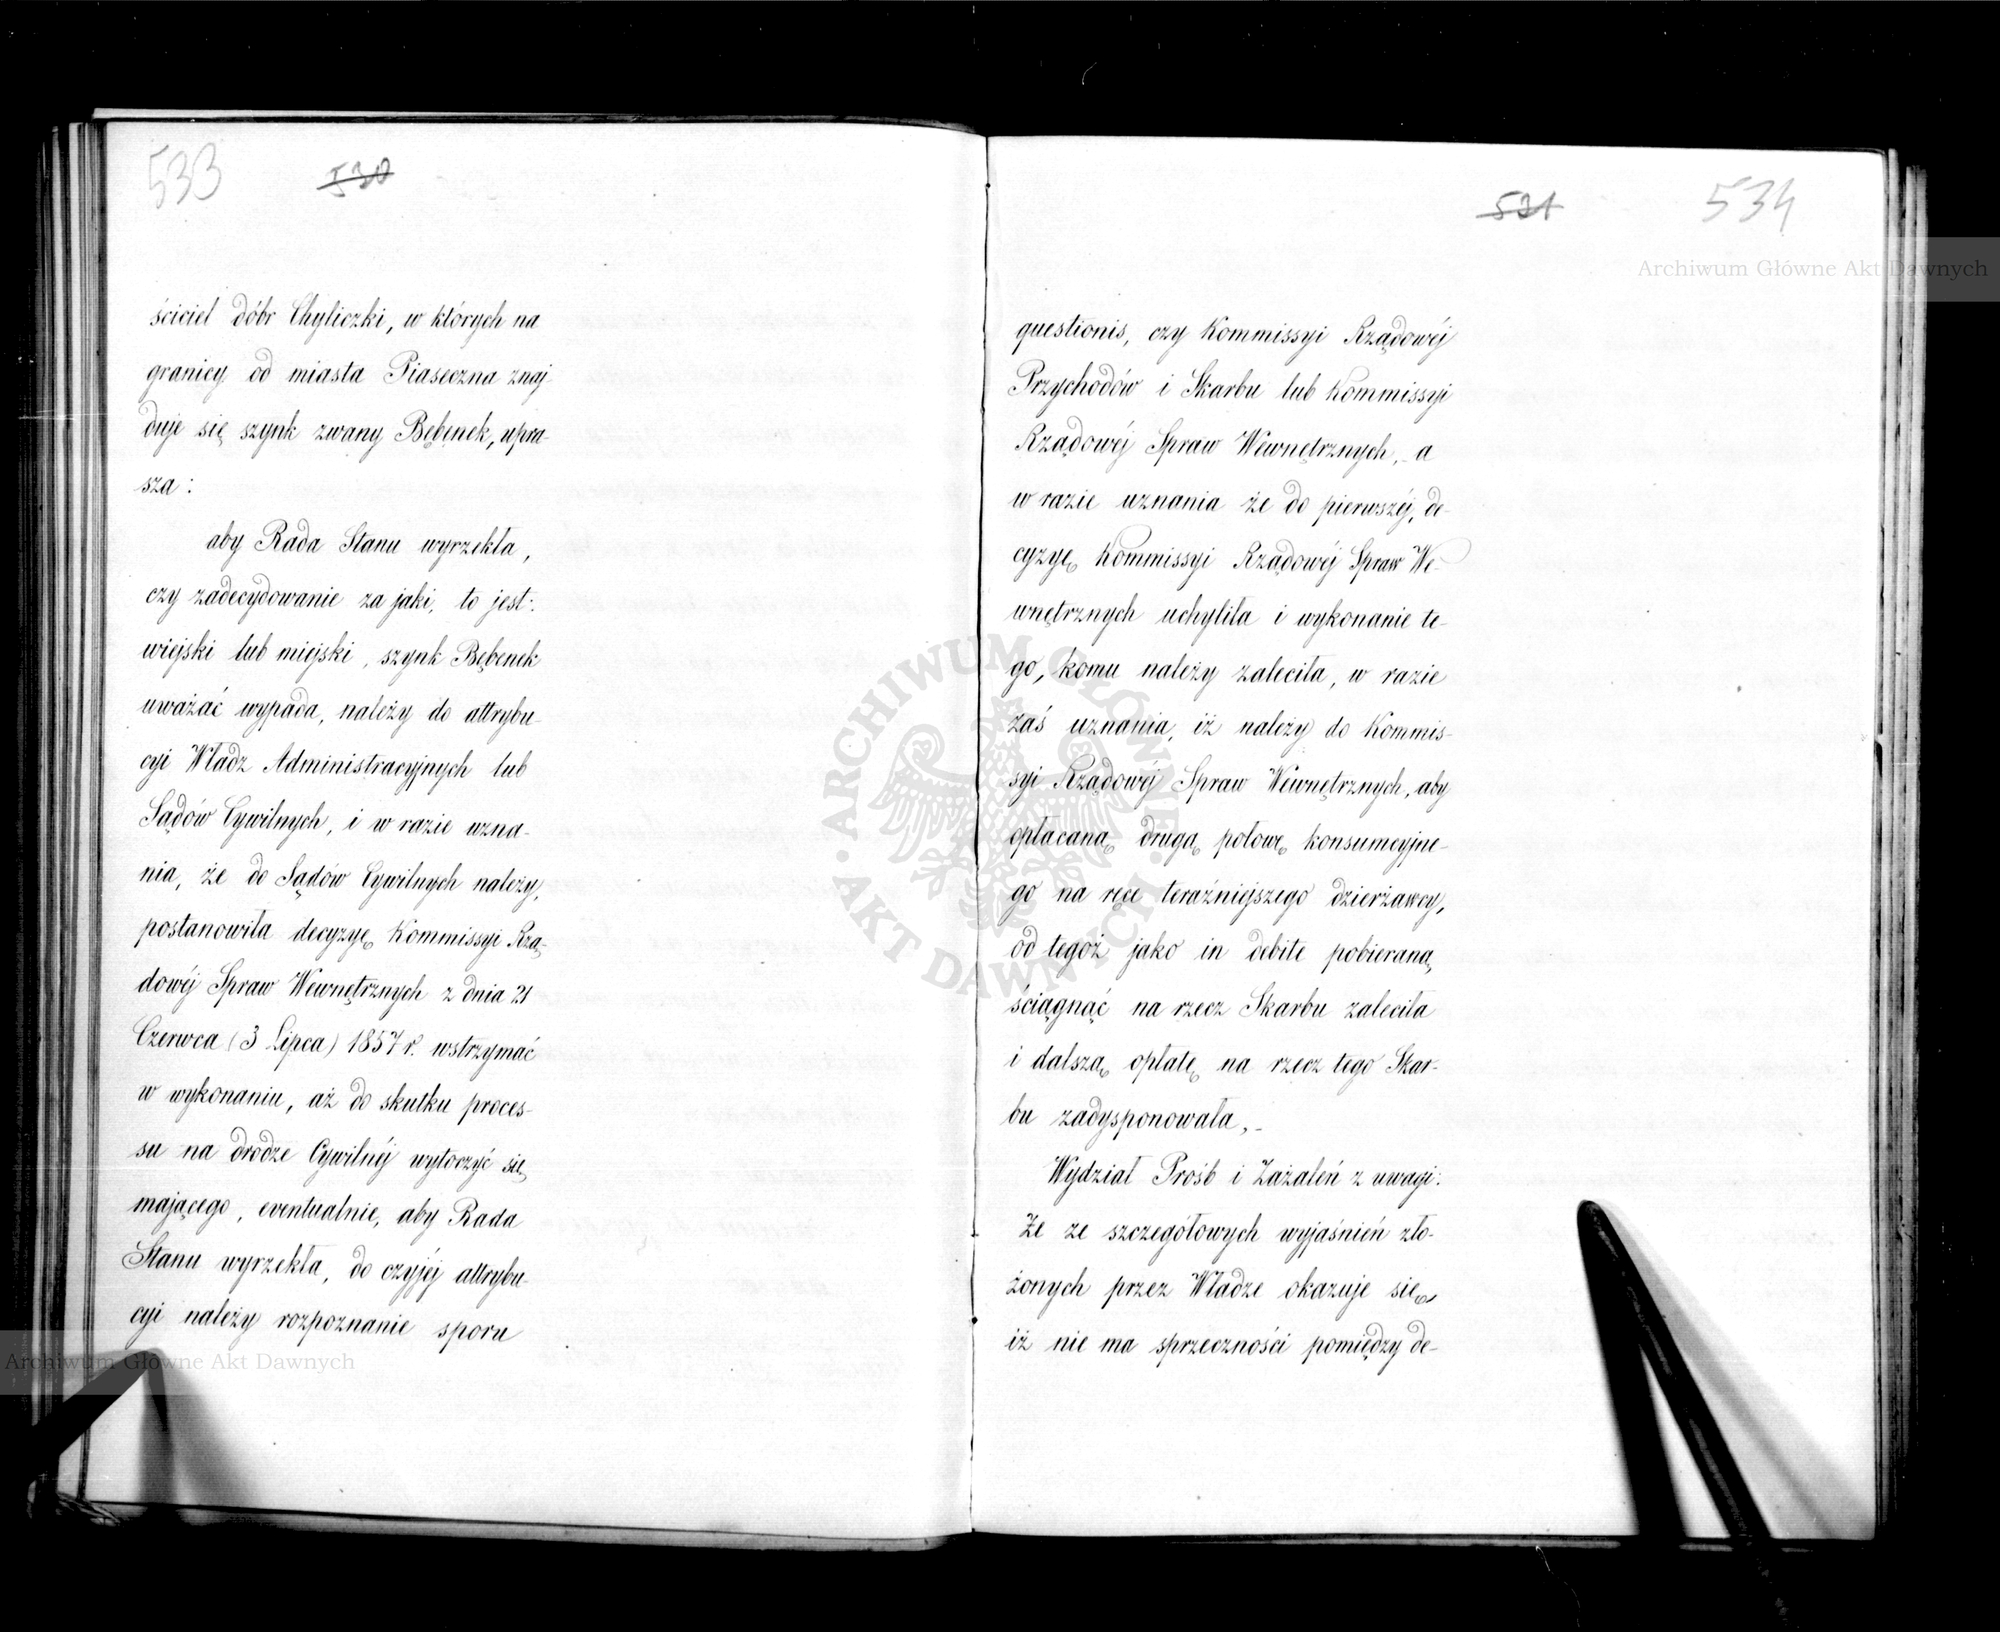 533
530
ściciel dóbr Chyliczki, w których na
granicy od miasta Piaseczna znaj-
duje się szynk zwany Bębenek, upra-
sza:
aby Rada Stanu wyrzekła,
czy zadecydowanie za jaki, to jest:
wiejski lub miejski, szynk Bębenek
uważać wypada, należy do attrybu-
cyi Władz Administracyjnych lub
Sądów Cywilnych, i w razie uzna-
nia, że do Sądów Cywilnych należy,
postanowiła decyzyę Kommissyi Rzą-
dowéj Spraw Wewnętrznych z dnia 21
Czerwca (3 Lipca) 1857 r. wstrzymać
w wykonaniu, aż do skutku proces-
su na drodze Cywilnéj wytoczyć się
mającego, eventualnie, aby Rada
Stanu wyrzekła, do czyjéj attrybu-
cyi należy rozpoznanie sporu
531
534
questionis, czy Kommissyi Rządowéj
Przychodów i Skarbu lub Kommissyi
Rządowéj Spraw Wewnętrznych, – a
w razie uznania że do pierwszéj, de-
cyzyę Kommissyi Rządowéj Spraw We-
wnętrznych uchyliła i wykonanie te-
go, komu należy zaleciła, w razie
zaś uznania, iż należy do Kommis-
syi Rządowéj Spraw Wewnętrznych, aby
opłacaną drugą połowę konsumcyjne-
go na ręce teraźniejszego dzierżawcy,
od tegoż jako in debite pobieraną,
ściągnąć na rzecz Skarbu zaleciła
i dalszą opłatę na rzecz tego Skar-
bu zadysponowała, –
Wydział Prośb i Zażaleń z uwagi:
Że ze szczegółowych wyjaśnień zło-
żonych przez Władze okazuje się,
iż nie ma sprzeczności pomiędzy de-
Archiwum Główne Akt Dawnych
ARCHIWUM GŁÓWNE · AKT DAWNYCH ·
Archiwum Główne Akt Dawnych